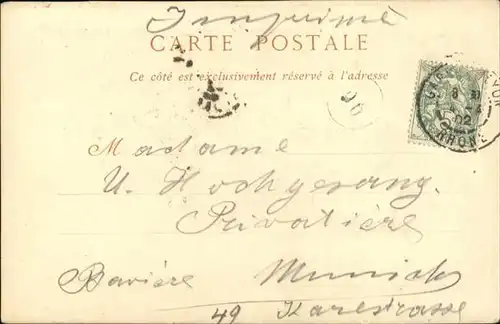 Imprimé
CARTE POSTALE
Ce côté est exclusivement réservé à l'adresse
YON
02
RHONE
Madame
U. Hochgesang.
Privatière
Bavière Munich
49 Karlstrasse